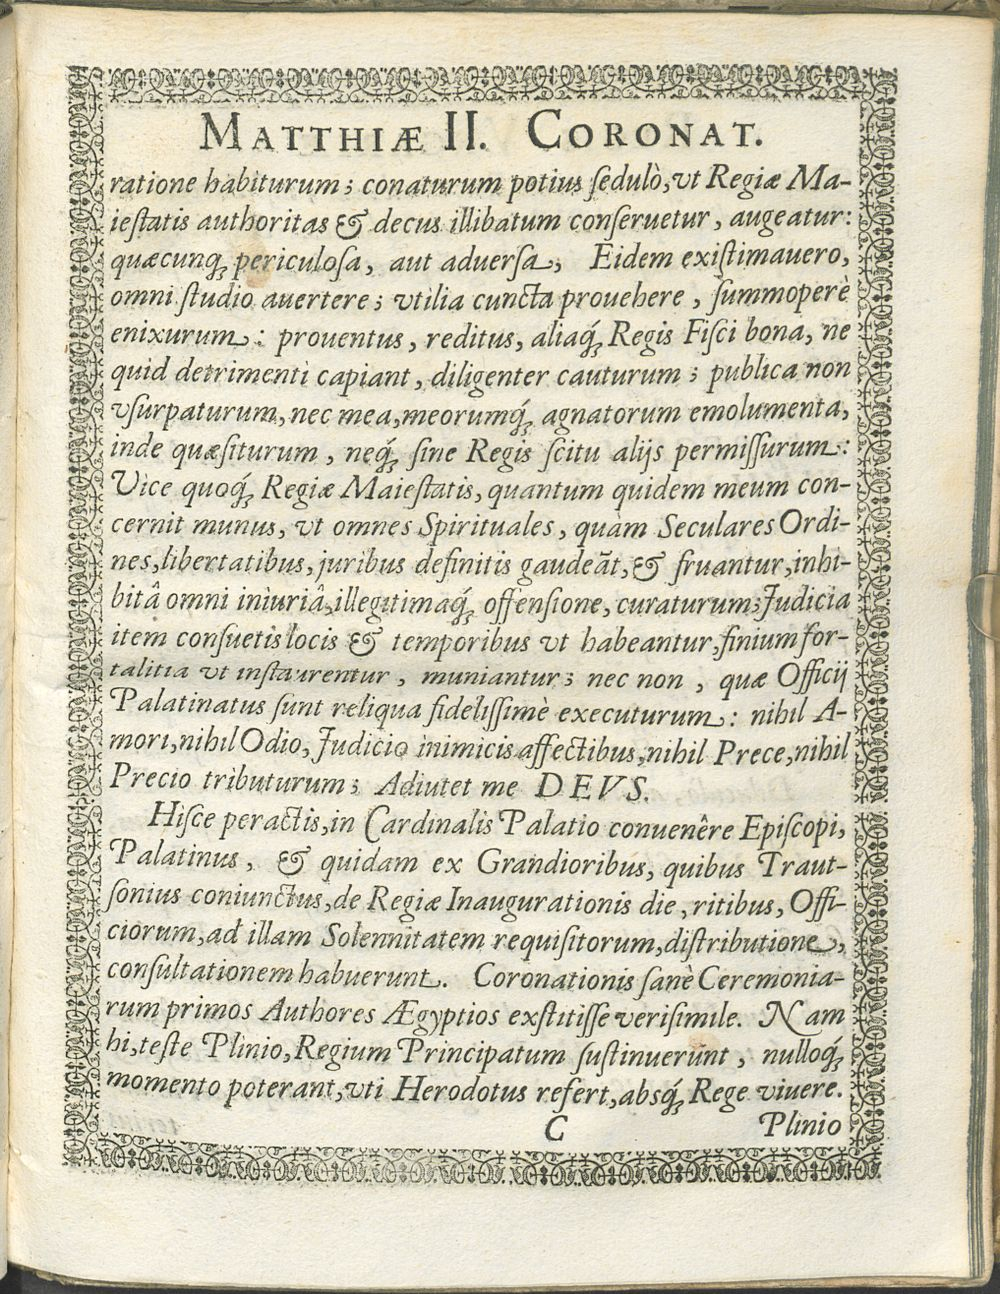 MATTHIÆ II. CORONAT.
ratione habiturum; conaturum potius ſedulò, vt Regiæ Ma-
ieſtatis authoritas & decus illibatum conſeruetur, augeatur:
quæcunq́; periculoſa, aut aduerſa, Eidem exiſtimauero,
omni ſtudio auertere; vtilia cuncta prouehere, ſummoperè
enixurum: prouentus, reditus, aliaq́; Regis Fiſci bona, ne
quid detrimenti capiant, diligenter cauturum; publica non
vſurpaturum, nec mea, meorumq́; agnatorum emolumenta,
inde quæſiturum, neq́; ſine Regis ſcitu alijs permiſſurum:
Vice quoq́; Regiæ Maieſtatis, quantum quidem meum con-
cernit munus, vt omnes Spirituales, quàm Seculares Ordi-
nes, libertatibus, juribus definitis gaudeāt, & fruantur, inhi-
bitâ omni iniuriâ, illegitimaq́; offenſione, curaturum; Judicia
item conſuetis locis & temporibus vt habeantur, finium for-
talitia vt inſtaurentur, muniantur; nec non, quæ Officij
Palatinatus ſunt reliqua fideliſſimè executurum: nihil A-
mori, nihil Odio, Judicio inimicis affectibus, nihil Prece, nihil
Precio tributurum; Adiutet me DEVS.
Hiſce peractis, in Cardinalis Palatio conuenêre Epiſcopi,
Palatinus, & quidam ex Grandioribus, quibus Traut-
ſonius coniunctus, de Regiæ Inaugurationis die, ritibus, Offi-
ciorum, ad illam Solennitatem requiſitorum, diſtributione,
conſultationem habuerunt. Coronationis ſanè Ceremonia-
rum primos Authores Ægyptios exſtitiſſe veriſimile. Nam
hi, teſte Plinio, Regium Principatum ſuſtinuerunt, nulloq́;
momento poterant, vti Herodotus refert, absq́; Rege viuere.
C Plinio